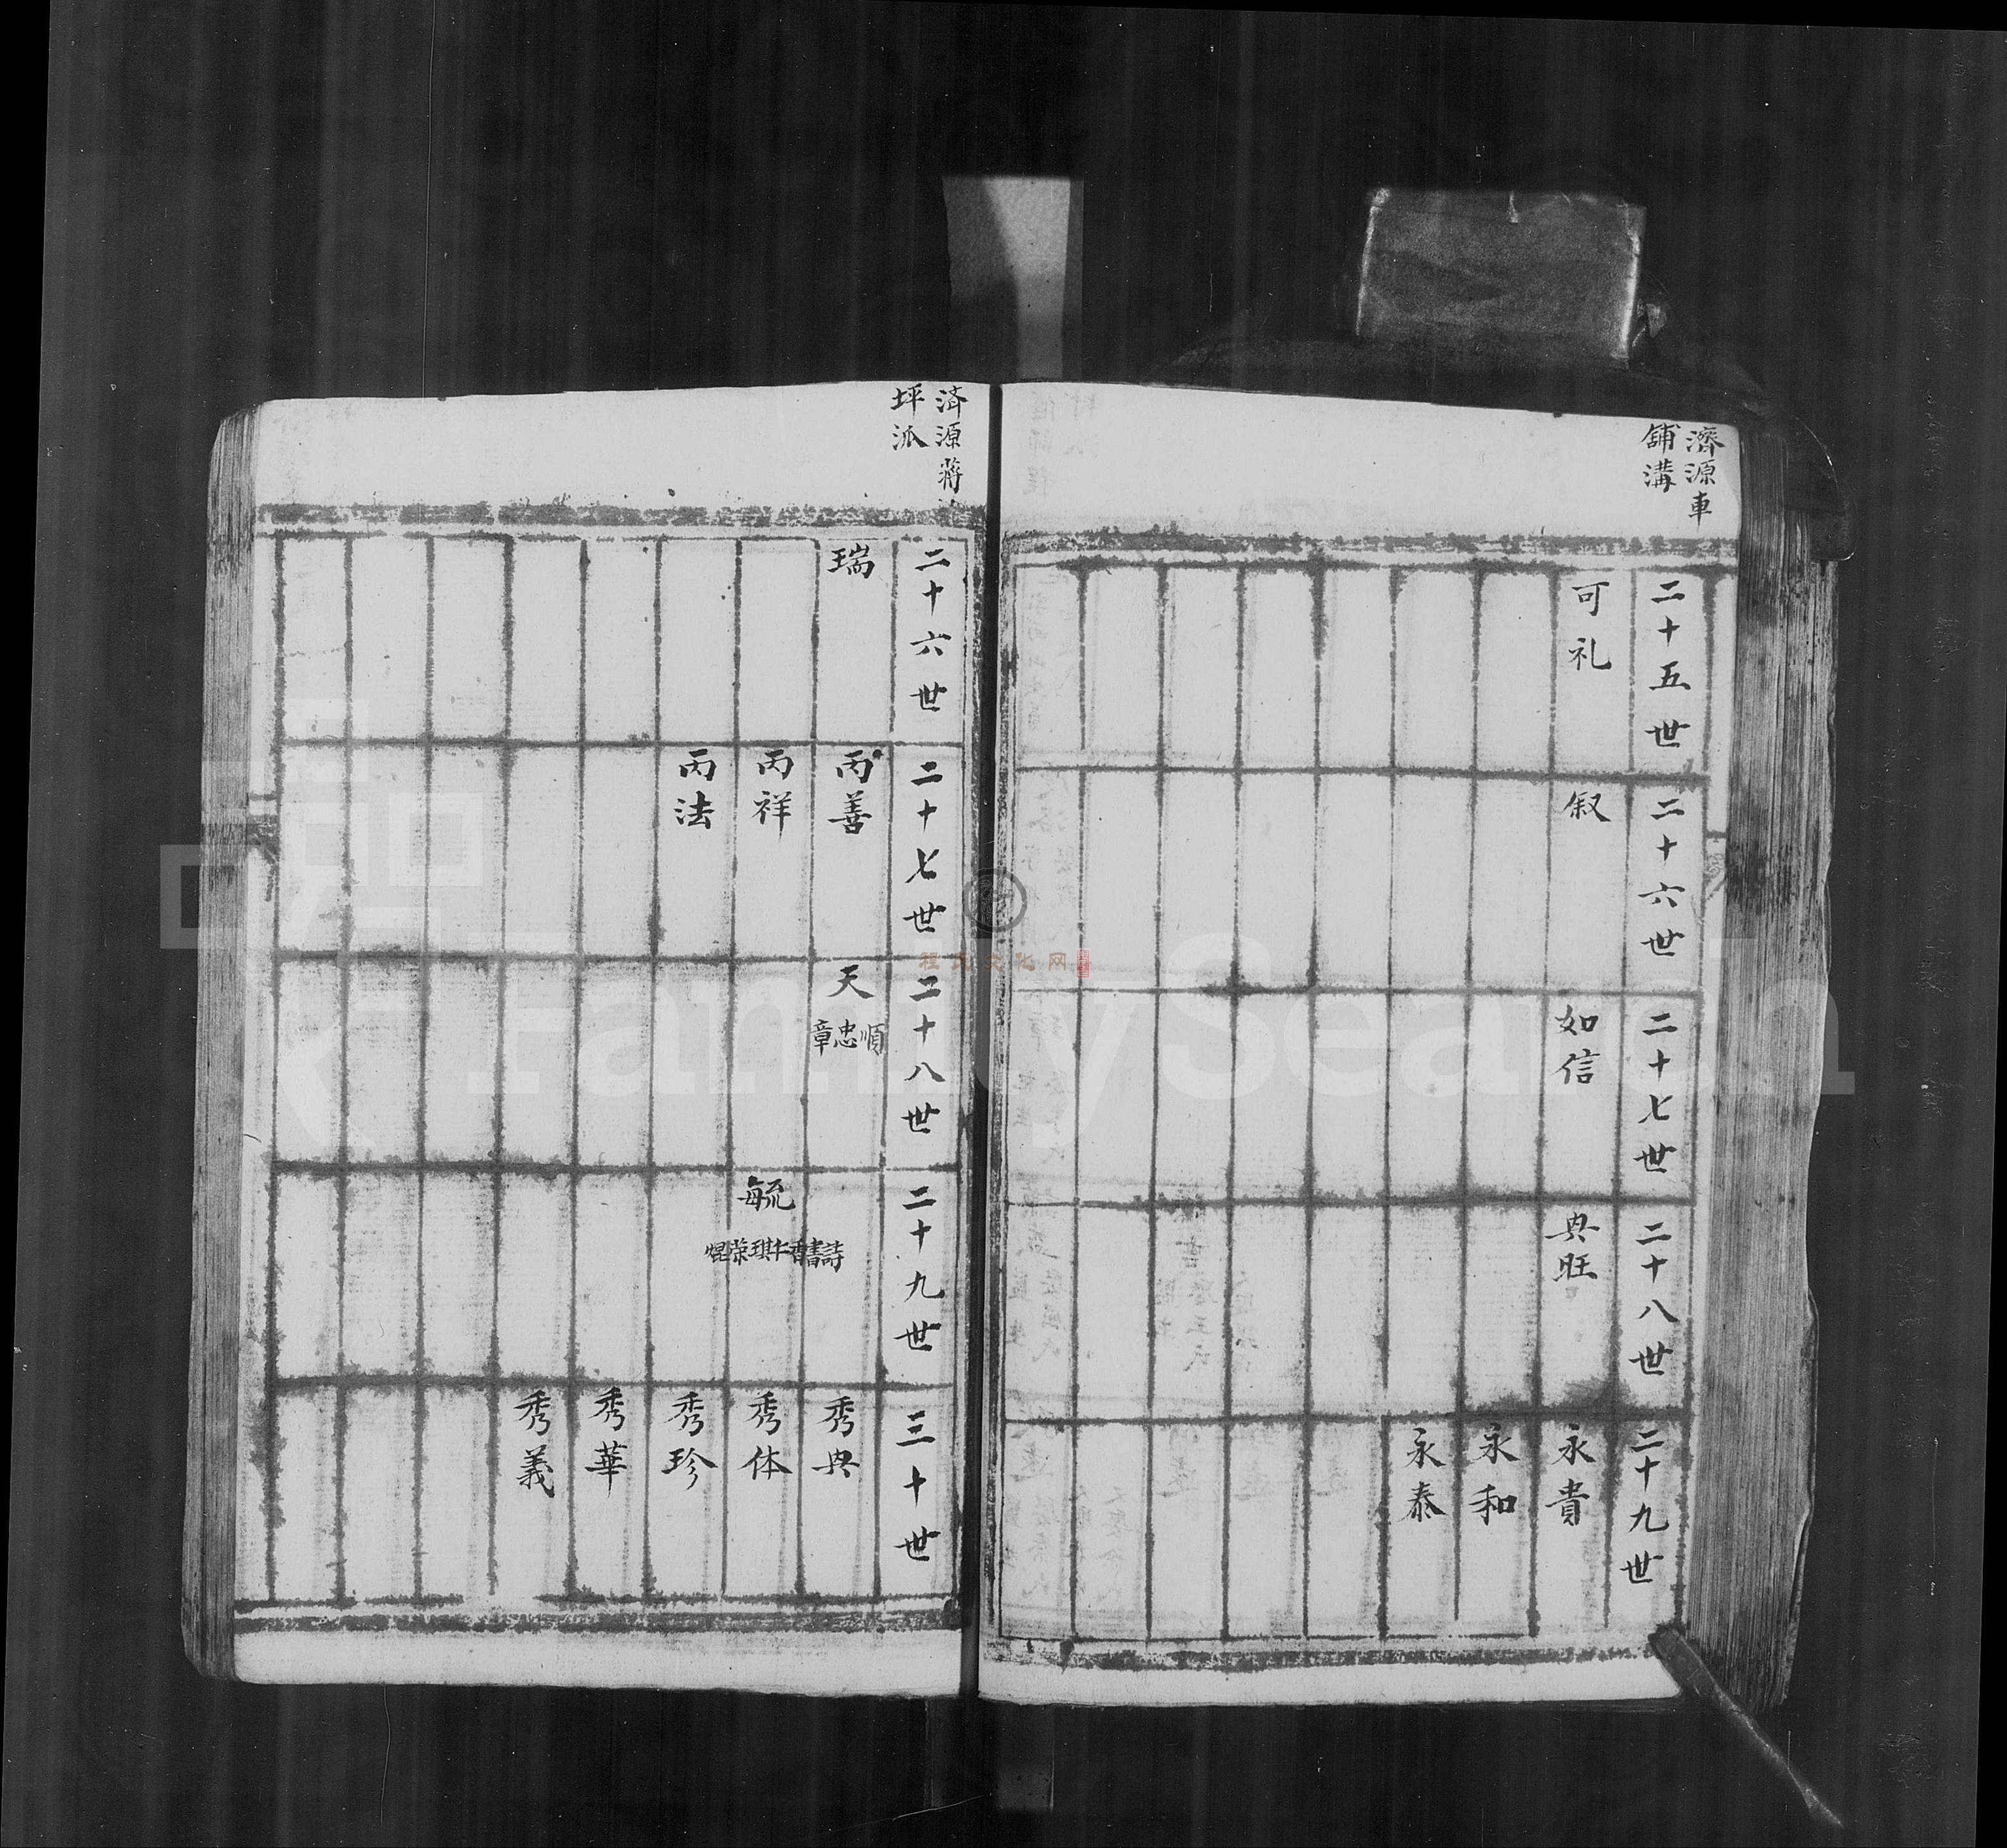 濟源車
舖溝
二十五世
可礼
二十六世
叙
二十七世
如信
二十八世
典旺
二十九世
永貴
永和
永泰
済源蒋
坪派
二十六世
瑞
二十七世
丙善
丙祥
丙法
二十八世
天
順
忠
章
二十九世
毓
詩
書
香
琪
榮
焜
三十世
秀典
秀体
秀珍
秀華
秀義
程氏文化网
FamilySearch